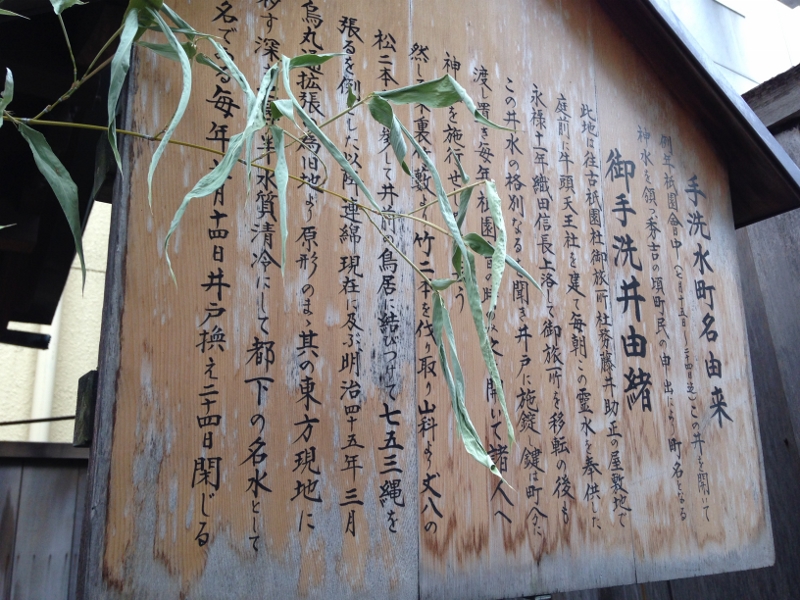 手洗水町名由来
例年祇園会中(七月十五日〜二十四日迄)この井を開いて
神水を領つ秀吉の頃町民の申出により町名となる
御手洗井由緒
此地は往古祇園社御旅所社務藤井助正の屋敷地で
庭前に牛頭天王社を建て毎朝この霊水を奉供した
永禄十一年織田信長上洛して御旅所を移転の後も
この井水の格別なるを聞き井戸に施錠し鍵は町分に
渡し置き毎年祇園会の時のみ之を開いて諸人へ
神水を施行せ
然して裏の藪より竹二本を伐り取り山科より丈八の
松二本 して井前の鳥居に結びつけて七五三縄を
張るを例とした以降連綿現在に及ぶ明治四十五年三月
烏丸通拡張の為旧地より原形のまゝ其の東方現地に
移す深 水質清冷にして都下の名水として
名で る毎年 月十四日井戸換え二十四日閉じる